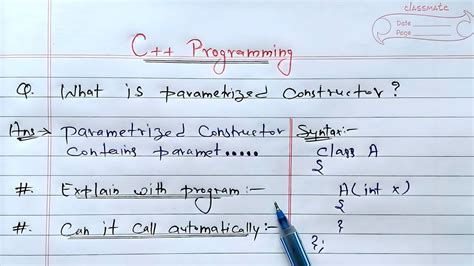 classmate
Date
Page
C++ Programming
Q. What is parametrized Constructor?
Ans→ Parametrized Constructor
contains paramet.....
#. Explain with program:-
#. Can it call automatically:-
Syntax:-
class A
{
A(int x)
{
}
};